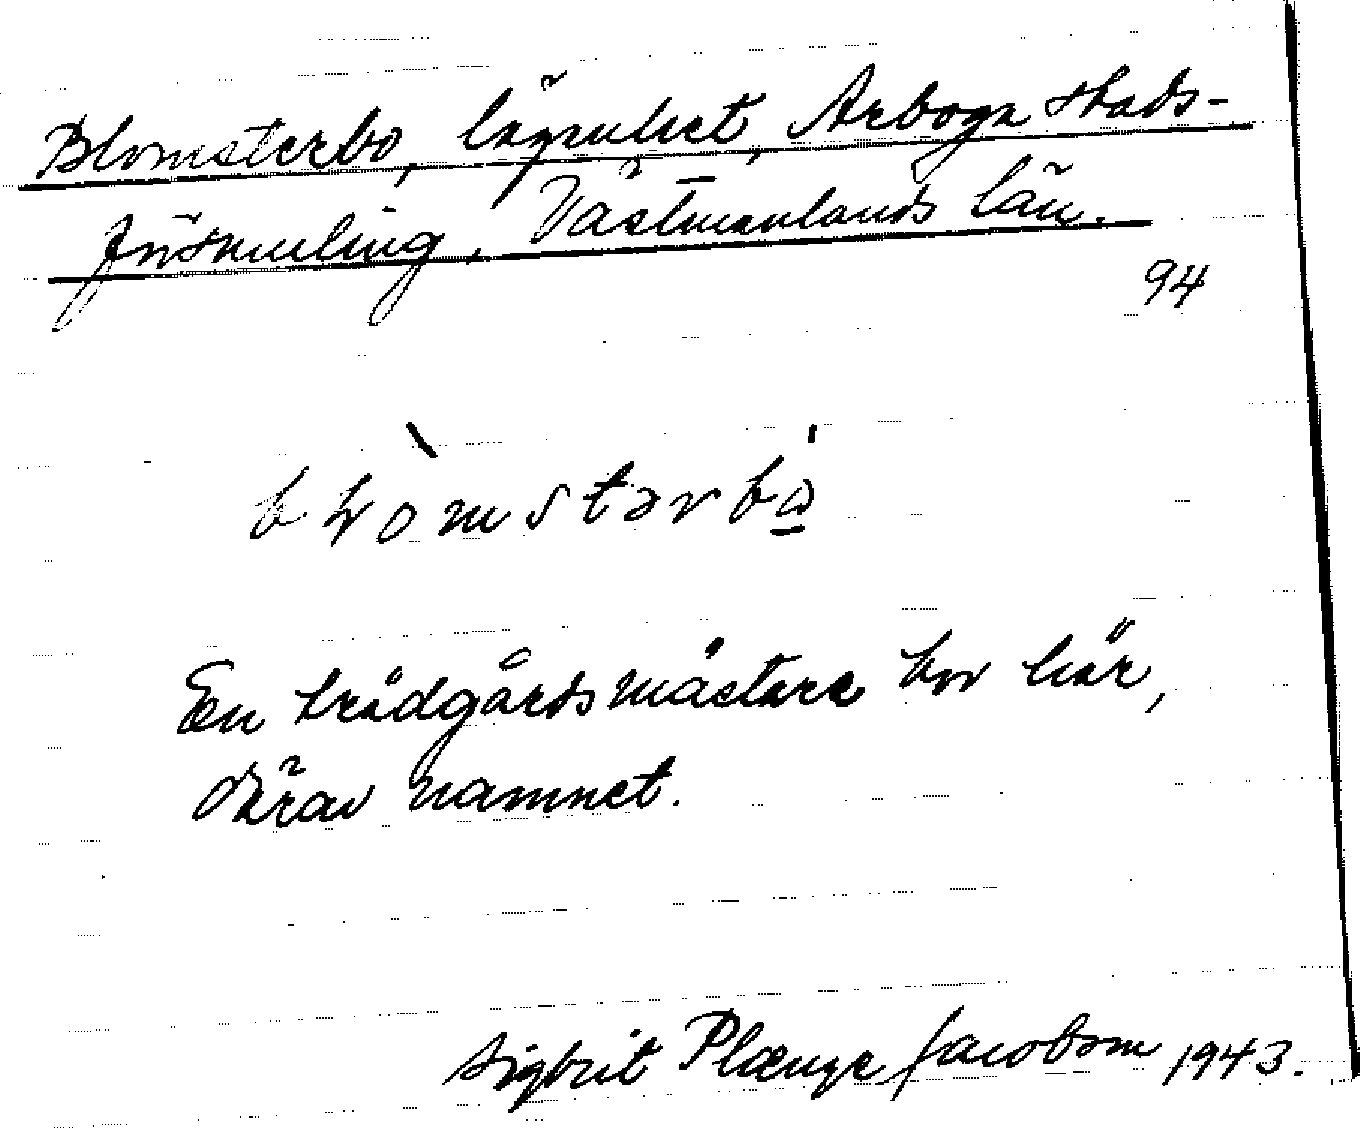 Blomsterbo, lägenhet, Arboga stads-
församling, Västmanlands län.
94
bɫòmstərbω̲̍
En trädgårdsmästare bor här,
därav namnet.
Sigbrit Plænge Jacobson 1943.